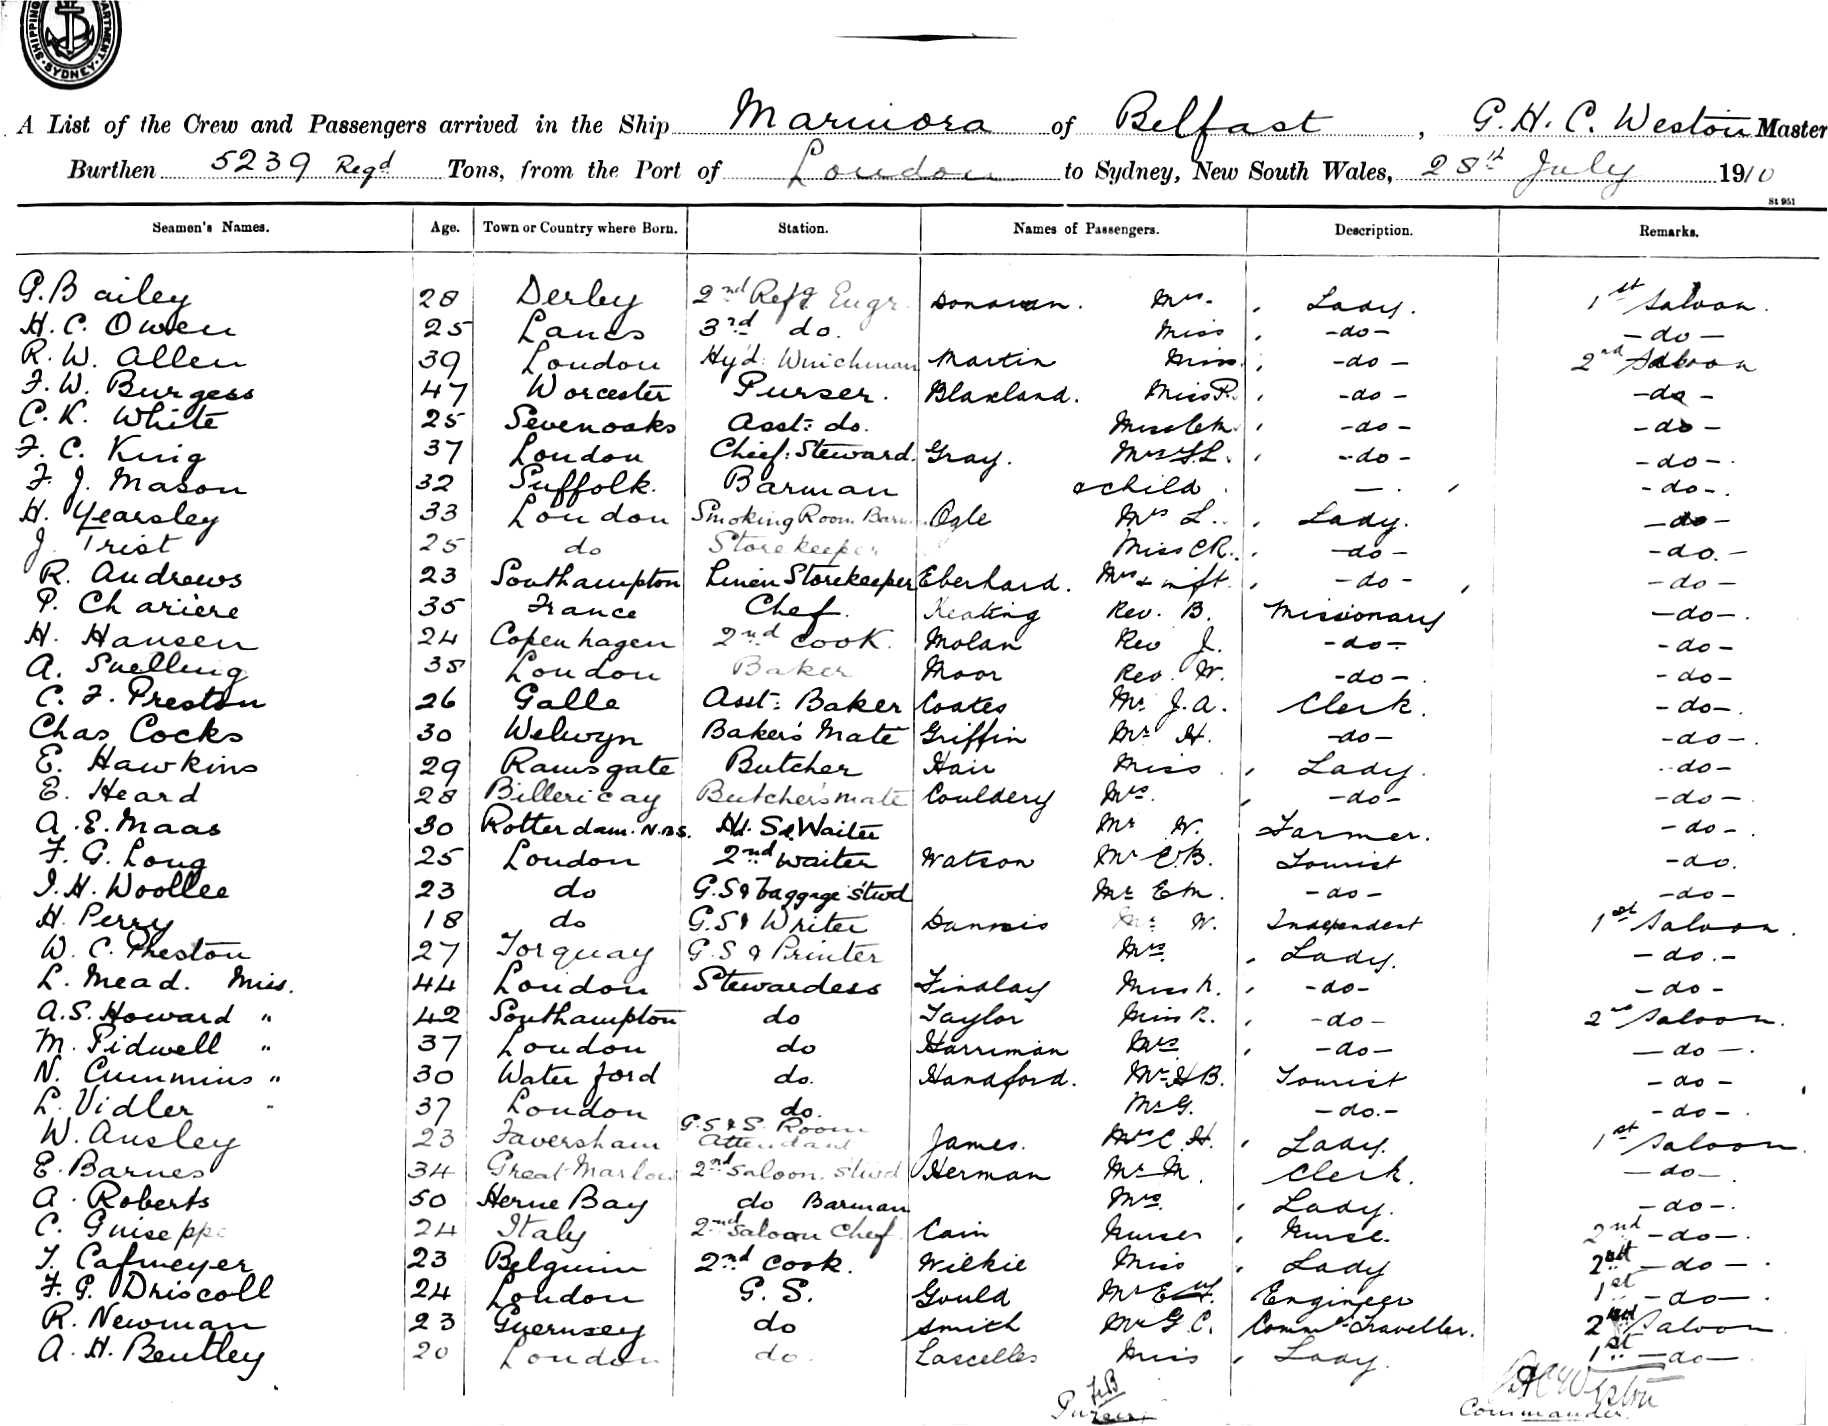 SHIPPING DEPARTMENT SYDNEY
A List of the Crew and Passengers arrived in the Ship Marmora of Belfast, G. H. C. Weston Master
Burthen 5239 Regd Tons, from the Port of London to Sydney, New South Wales, 28th July 1910
St 951
Seamen's Names. Age. Town or Country where Born. Station. Names of Passengers. Description. Remarks.
G. Bailey 28 Derby 2nd Refg Engr. Donovan. Mrs. , Lady. 1st Saloon.
H. C. Owen 25 Lancs 3rd do. Miss , -do- -do-
R. W. Allen 39 London Hyd: Winchman Martin Miss. , -do- 2nd Saloon
F. W. Burgess 47 Worcester Purser. Blaxland. Miss P. , -do- -do-
C. K. White 25 Sevenoaks Asst: do. Miss , -do- -do-
F. C. King 37 London Chief: Steward. Gray. Mrs F.L. , -do- -do-.
F. J. Mason 32 Suffolk. Barman & child. -. , -do-.
H. Yearsley 33 London Smoking Room Barn Ogle Mrs L.. , Lady. -do-
J. Trist 25 do Storekeeper Miss C.R. , -do- -do.-
R. Andrews 23 Southampton Linen Storekeeper Eberhard. Mrs & inft. , -do- , -do-
P. Chariere 35 France Chef. Keating Rev. B. Missionary -do-.
H. Hansen 24 Copenhagen 2nd Cook. Molan Rev J. -do- -do-
A. Snelling 38 London Baker Moor Rev. W. -do-. -do-
C. F. Preston 26 Galle Asst: Baker Coates Mr. J.A. Clerk. -do-.
Chas Cocks 30 Welwyn Baker's Mate Griffin Mr H. -do- -do-.
E. Hawkins 29 Ramsgate Butcher Hair Miss. , Lady. -do-
E. Heard 28 Billericay Butcher's mate Couldery Mrs. , -do- -do-.
A. E. Maas 30 Rotterdam. N.B.S. Hd. S& Waiter Mr W. Farmer. -do-.
F. G. Long 25 London 2nd Waiter Watson Mr C.B. Tourist -do.
J. H. Woollee 23 do G.S & baggage stwd Mr E.M. -do- -do-
H. Perry 18 do G.S & Writer Dannis Mr W. Independent 1st Saloon.
W. C. Preston 27 Torquay G.S & Printer Mrs. , Lady. -do.-
L. Mead. Miss. 44 London Stewardess Findlay Miss K. , -do- -do-
A. S. Howard " 42 Southampton do Taylor Miss R. , -do- 2nd Saloon.
M. Pidwell " 37 London do Harriman Mrs , -do- -do-.
N. Cummins " 30 Waterford do. Handford. Mr H B. Tourist -do-
L. Vidler " 37 London do. Mr G. -do.- -do-.
W. Ansley 23 Faversham G.S & S. Room Attendant James. Mrs C. H. , Lady. 1st Saloon.
E. Barnes 34 Great Marlow 2nd Saloon. Stwd Herman Mr M. Clerk. -do-.
A. Roberts 50 Herne Bay do Barman Mrs. , Lady. -do-.
C. Guiseppe 24 Italy 2nd Saloon Chef Cain Nurse , Nurse. 2nd -do-.
T. Cafmeyer 23 Belguim 2nd Cook. Wilkie Miss , Lady 2nd -do-.
F. G. Driscoll 24 London G. S. Gould Mr E Engineer 1st -do-.
R. Newman 23 Guernsey do Smith Mr G C. Comml. Traveller. 2nd Saloon
A. H. Bentley 20 London do. Lascelles Miss , Lady. 1st -do-.
FB G.H.C. Weston
Purser Commander.